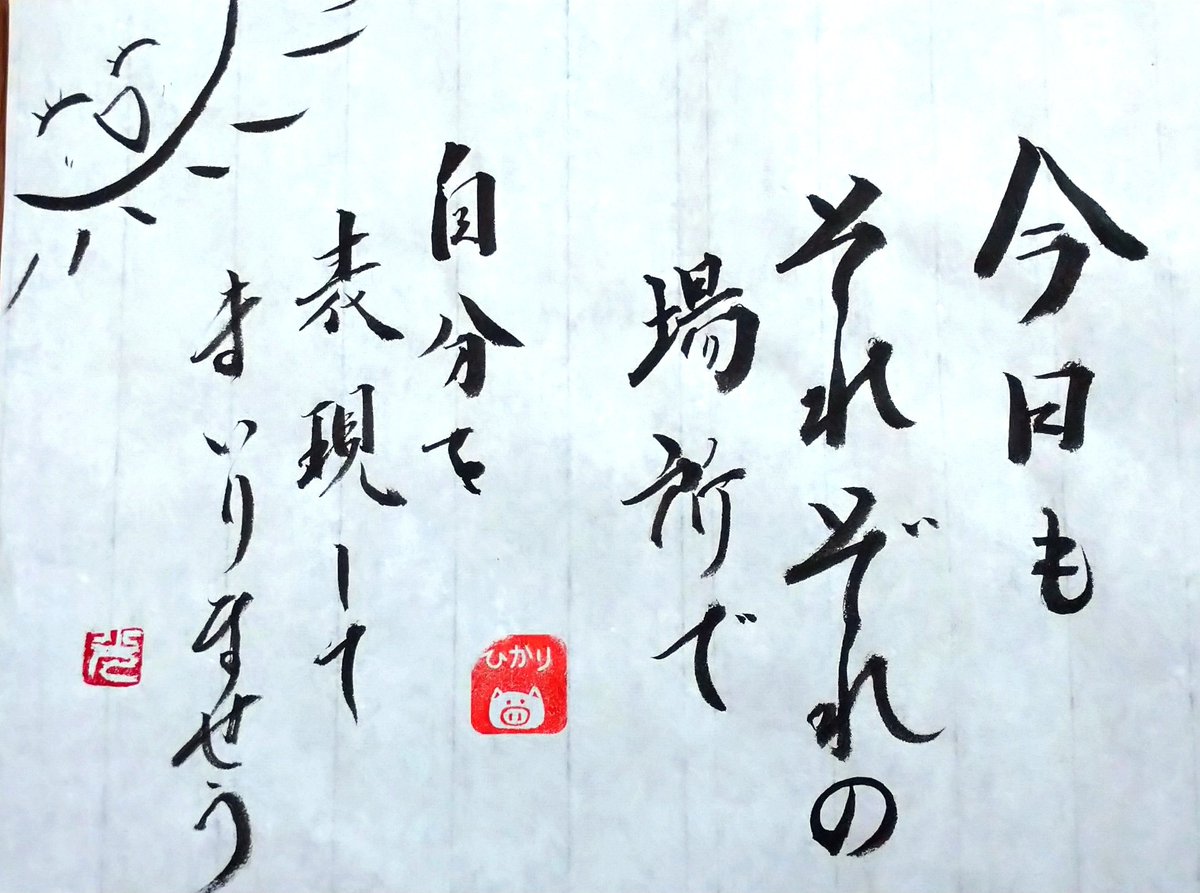 今日も
それぞれの
場所で
自分を
表現して
まいりませう
ひかり
光